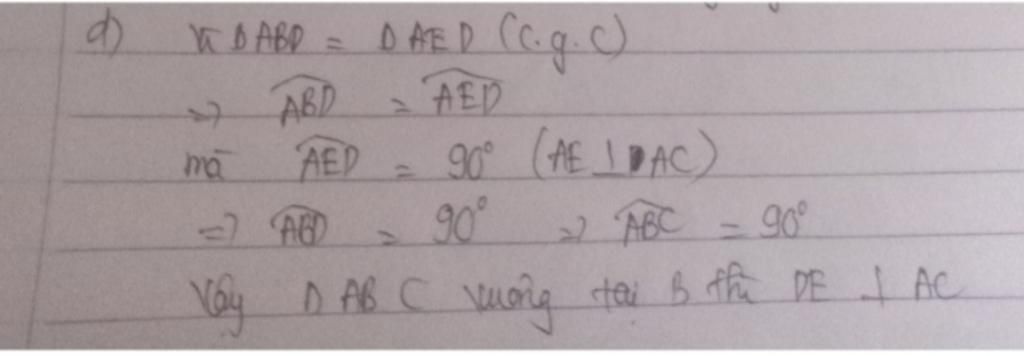 d) Vì ΔABD = ΔAED (c.g.c)
=> \widehat{ABD} = \widehat{AED}
mà \widehat{AED} = 90° (AE ⊥ AC)
=> \widehat{ABD} = 90° => \widehat{ABC} = 90°
Vậy Δ ABC vuông tại B thì DE ⊥ AC